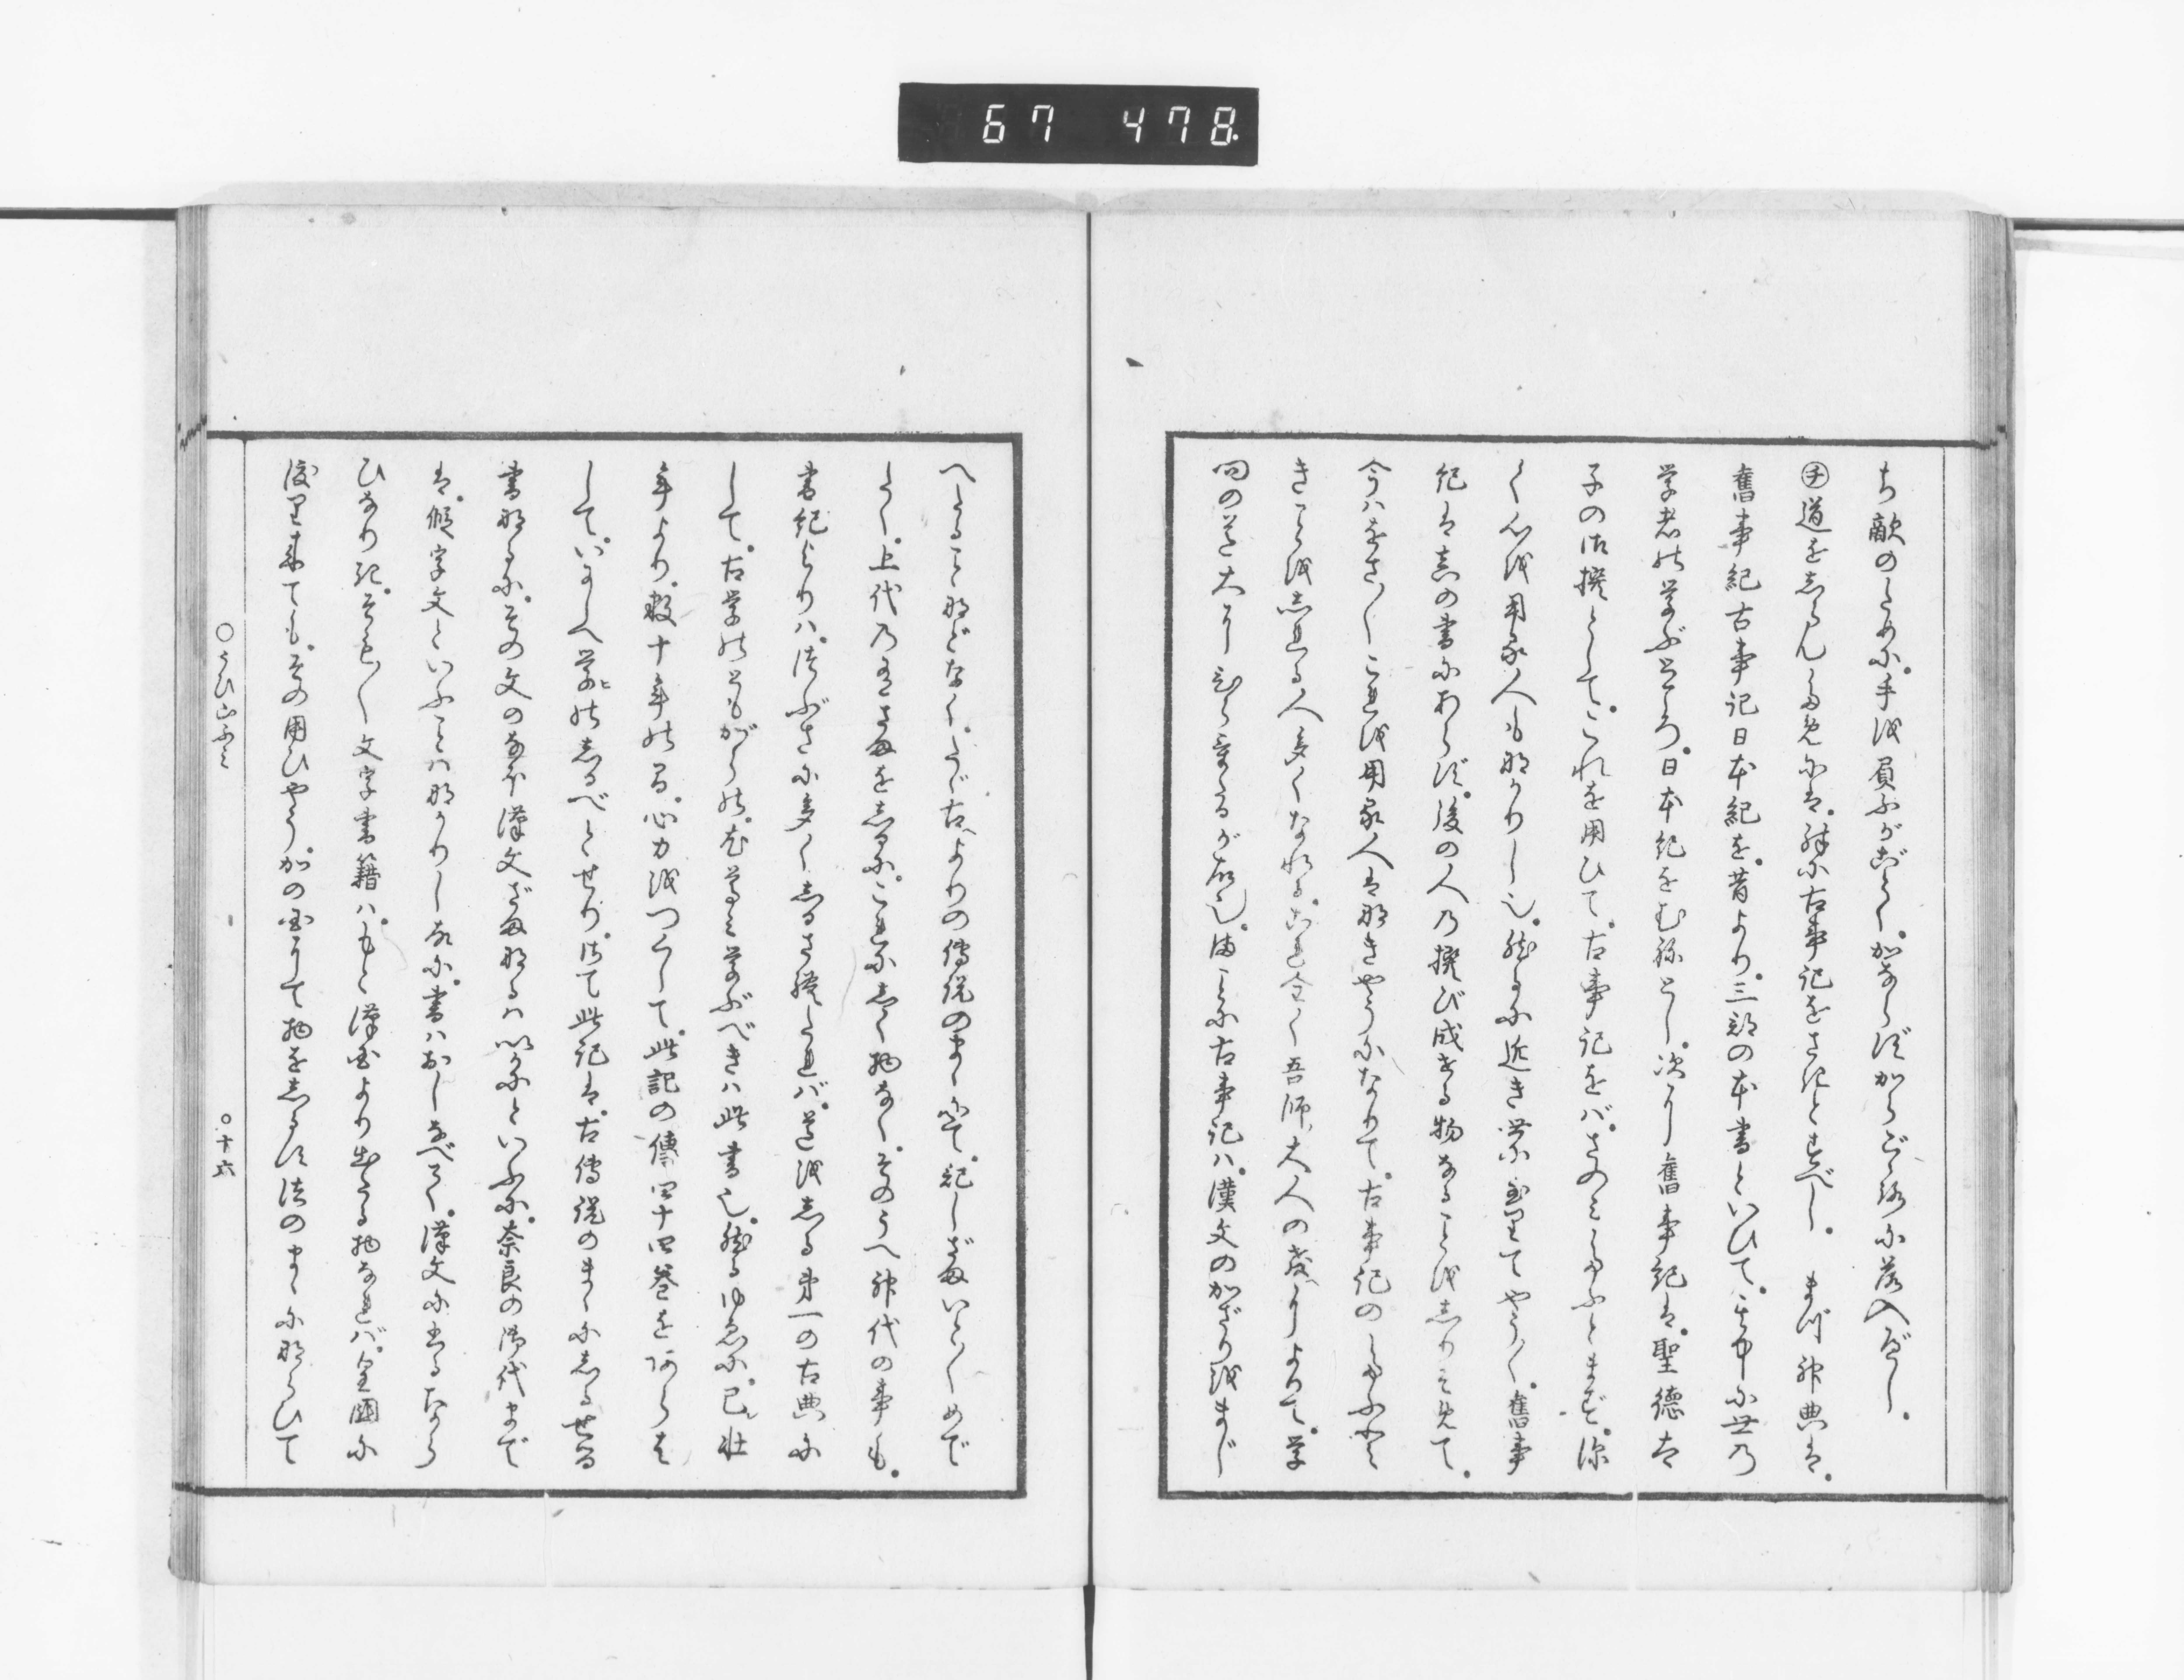 67 478
ち敵のために。手を負ふがごとく。かならずからごゝろに落入べし。
㋠道をしらんためには。殊に古事記をさきとすべし。　まづ神典は。
舊事紀古事記日本紀を。昔より。三部の本書といひて。其中に世の
学者の学ぶところ。日本紀をむねとし。次に舊事紀は。聖徳太
子の御撰として。これを用ひて。古事記をば。さのみたふとまず。深
く心を用る人もなかりし也。然るに近き世に至りてやう〳〵。舊事
紀は真の書にあらず。後の人の撰び成せる物なることをしりそめて。
今ハをさ〳〵これを用る人はなきやうになりて。古事記のたふとき
きことをしれる人多くなれる。これ全く吾師大人の教によりて。学
問の道大にひらけたるが故也。まことに古事記ハ。漢文のかざりをまじ
へたることなどなく。たゞ古よりの傳説のまゝにて。記しざまいと〳〵めで
たく。上代の有さまをしるに。これにしく物なく。そのうへ神代の事も。
書紀よりハ。つぶさに多くしるされたれバ。道をしる第一の古典に
して。古学のともがらの。尤尊み学ぶべきハ此書也。然るゆゑに。己壮
年より。数十年の間。心力をつくして。此記の傳四十四巻をあらは
して。いにしへ学ヒのしるべとせり。さて此記は。古傳説のまゝにしるせる
書なるに。その文のなほ漢文ざまなるハいかにといふに。奈良の御代まで
は。仮字文といふことハなかりし故に。書ハおしなべて。漢文に書るなら
ひなりき。そも〳〵文字書籍ハ。もと漢国より出たる物なれバ。皇國に
渡り来ても。その用ひやう。かの国にて物をしるす法のまゝにならひて
○うひ山ふミ
○十六